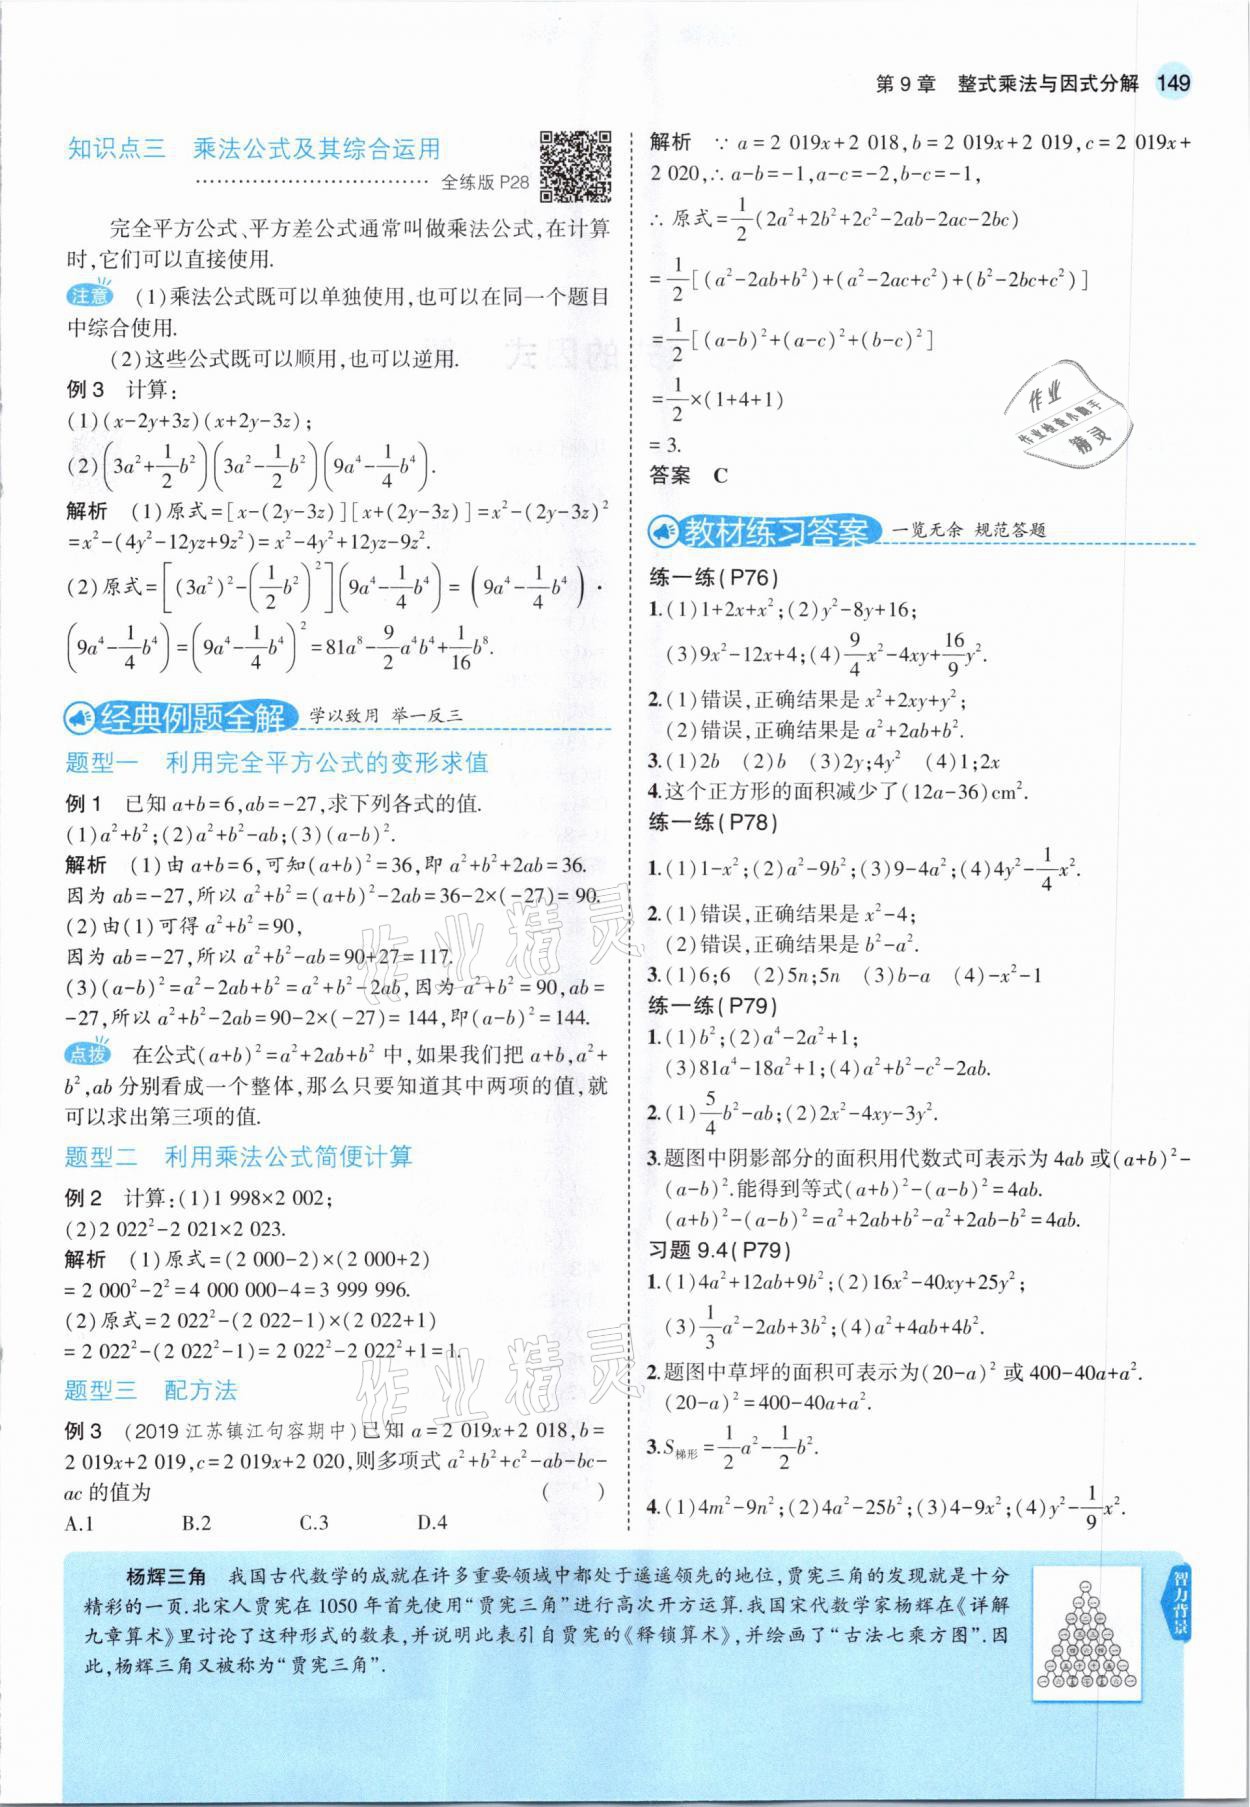 第9章 整式乘法与因式分解 149
知识点三 乘法公式及其综合运用
……………………………… 全练版P28
完全平方公式、平方差公式通常叫做乘法公式,在计算
时,它们可以直接使用.
注意 (1)乘法公式既可以单独使用,也可以在同一个题目
中综合使用.
(2)这些公式既可以顺用,也可以逆用.
例3 计算:
(1)(x-2y+3z)(x+2y-3z);
(2)(3a²+1/2b²)(3a²-1/2b²)(9a⁴-1/4b⁴).
解析 (1)原式=[x-(2y-3z)][x+(2y-3z)]=x²-(2y-3z)²
=x²-(4y²-12yz+9z²)=x²-4y²+12yz-9z².
(2)原式=[(3a²)²-(1/2b²)²](9a⁴-1/4b⁴)=(9a⁴-1/4b⁴)·
(9a⁴-1/4b⁴)=(9a⁴-1/4b⁴)²=81a⁸-9/2a⁴b⁴+1/16b⁸.
经典例题全解 学以致用 举一反三
题型一 利用完全平方公式的变形求值
例1 已知a+b=6,ab=-27,求下列各式的值.
(1)a²+b²;(2)a²+b²-ab;(3)(a-b)².
解析 (1)由a+b=6,可知(a+b)²=36,即a²+b²+2ab=36.
因为ab=-27,所以a²+b²=(a+b)²-2ab=36-2×(-27)=90.
(2)由(1)可得a²+b²=90,
因为ab=-27,所以a²+b²-ab=90+27=117.
(3)(a-b)²=a²-2ab+b²=a²+b²-2ab,因为a²+b²=90,ab=
-27,所以a²+b²-2ab=90-2×(-27)=144,即(a-b)²=144.
点拨 在公式(a+b)²=a²+2ab+b²中,如果我们把a+b,a²+
b²,ab分别看成一个整体,那么只要知道其中两项的值,就
可以求出第三项的值.
题型二 利用乘法公式简便计算
例2 计算:(1)1 998×2 002;
(2)2 022²-2 021×2 023.
解析 (1)原式=(2 000-2)×(2 000+2)
=2 000²-2²=4 000 000-4=3 999 996.
(2)原式=2 022²-(2 022-1)×(2 022+1)
=2 022²-(2 022²-1)=2 022²-2 022²+1=1.
题型三 配方法
例3 (2019江苏镇江句容期中)已知a=2 019x+2 018,b=
2 019x+2 019,c=2 019x+2 020,则多项式a²+b²+c²-ab-bc-
ac的值为 ( )
A.1 B.2 C.3 D.4
解析 ∵a=2 019x+2 018,b=2 019x+2 019,c=2 019x+
2 020,∴a-b=-1,a-c=-2,b-c=-1,
∴原式=1/2(2a²+2b²+2c²-2ab-2ac-2bc)
=1/2[(a²-2ab+b²)+(a²-2ac+c²)+(b²-2bc+c²)]
=1/2[(a-b)²+(a-c)²+(b-c)²]
=1/2×(1+4+1)
=3.
答案 C
作业
作业检查小助手
精灵
教材练习答案 一览无余 规范答题
练一练(P76)
1.(1)1+2x+x²;(2)y²-8y+16;
(3)9x²-12x+4;(4)9/4x²-4xy+16/9y².
2.(1)错误,正确结果是x²+2xy+y²;
(2)错误,正确结果是a²+2ab+b².
3.(1)2b (2)b (3)2y;4y² (4)1;2x
4.这个正方形的面积减少了(12a-36)cm².
练一练(P78)
1.(1)1-x²;(2)a²-9b²;(3)9-4a²;(4)4y²-1/4x².
2.(1)错误,正确结果是x²-4;
(2)错误,正确结果是b²-a².
3.(1)6;6 (2)5n;5n (3)b-a (4)-x²-1
练一练(P79)
1.(1)b²;(2)a⁴-2a²+1;
(3)81a⁴-18a²+1;(4)a²+b²-c²-2ab.
2.(1)5/4b²-ab;(2)2x²-4xy-3y².
3.题图中阴影部分的面积用代数式可表示为4ab或(a+b)²-
(a-b)².能得到等式(a+b)²-(a-b)²=4ab.
(a+b)²-(a-b)²=a²+2ab+b²-a²+2ab-b²=4ab.
习题9.4(P79)
1.(1)4a²+12ab+9b²;(2)16x²-40xy+25y²;
(3)1/3a²-2ab+3b²;(4)a²+4ab+4b².
2.题图中草坪的面积可表示为(20-a)²或400-40a+a².
(20-a)²=400-40a+a².
3.S梯形=1/2a²-1/2b².
4.(1)4m²-9n²;(2)4a²-25b²;(3)4-9x²;(4)y²-1/9x².
作业精灵
作业精灵
杨辉三角 我国古代数学的成就在许多重要领域中都处于遥遥领先的地位,贾宪三角的发现就是十分
精彩的一页.北宋人贾宪在1050年首先使用“贾宪三角”进行高次开方运算.我国宋代数学家杨辉在《详解
九章算术》里讨论了这种形式的数表,并说明此表引自贾宪的《释锁算术》,并绘画了“古法七乘方图”.因
此,杨辉三角又被称为“贾宪三角”.
智力背景